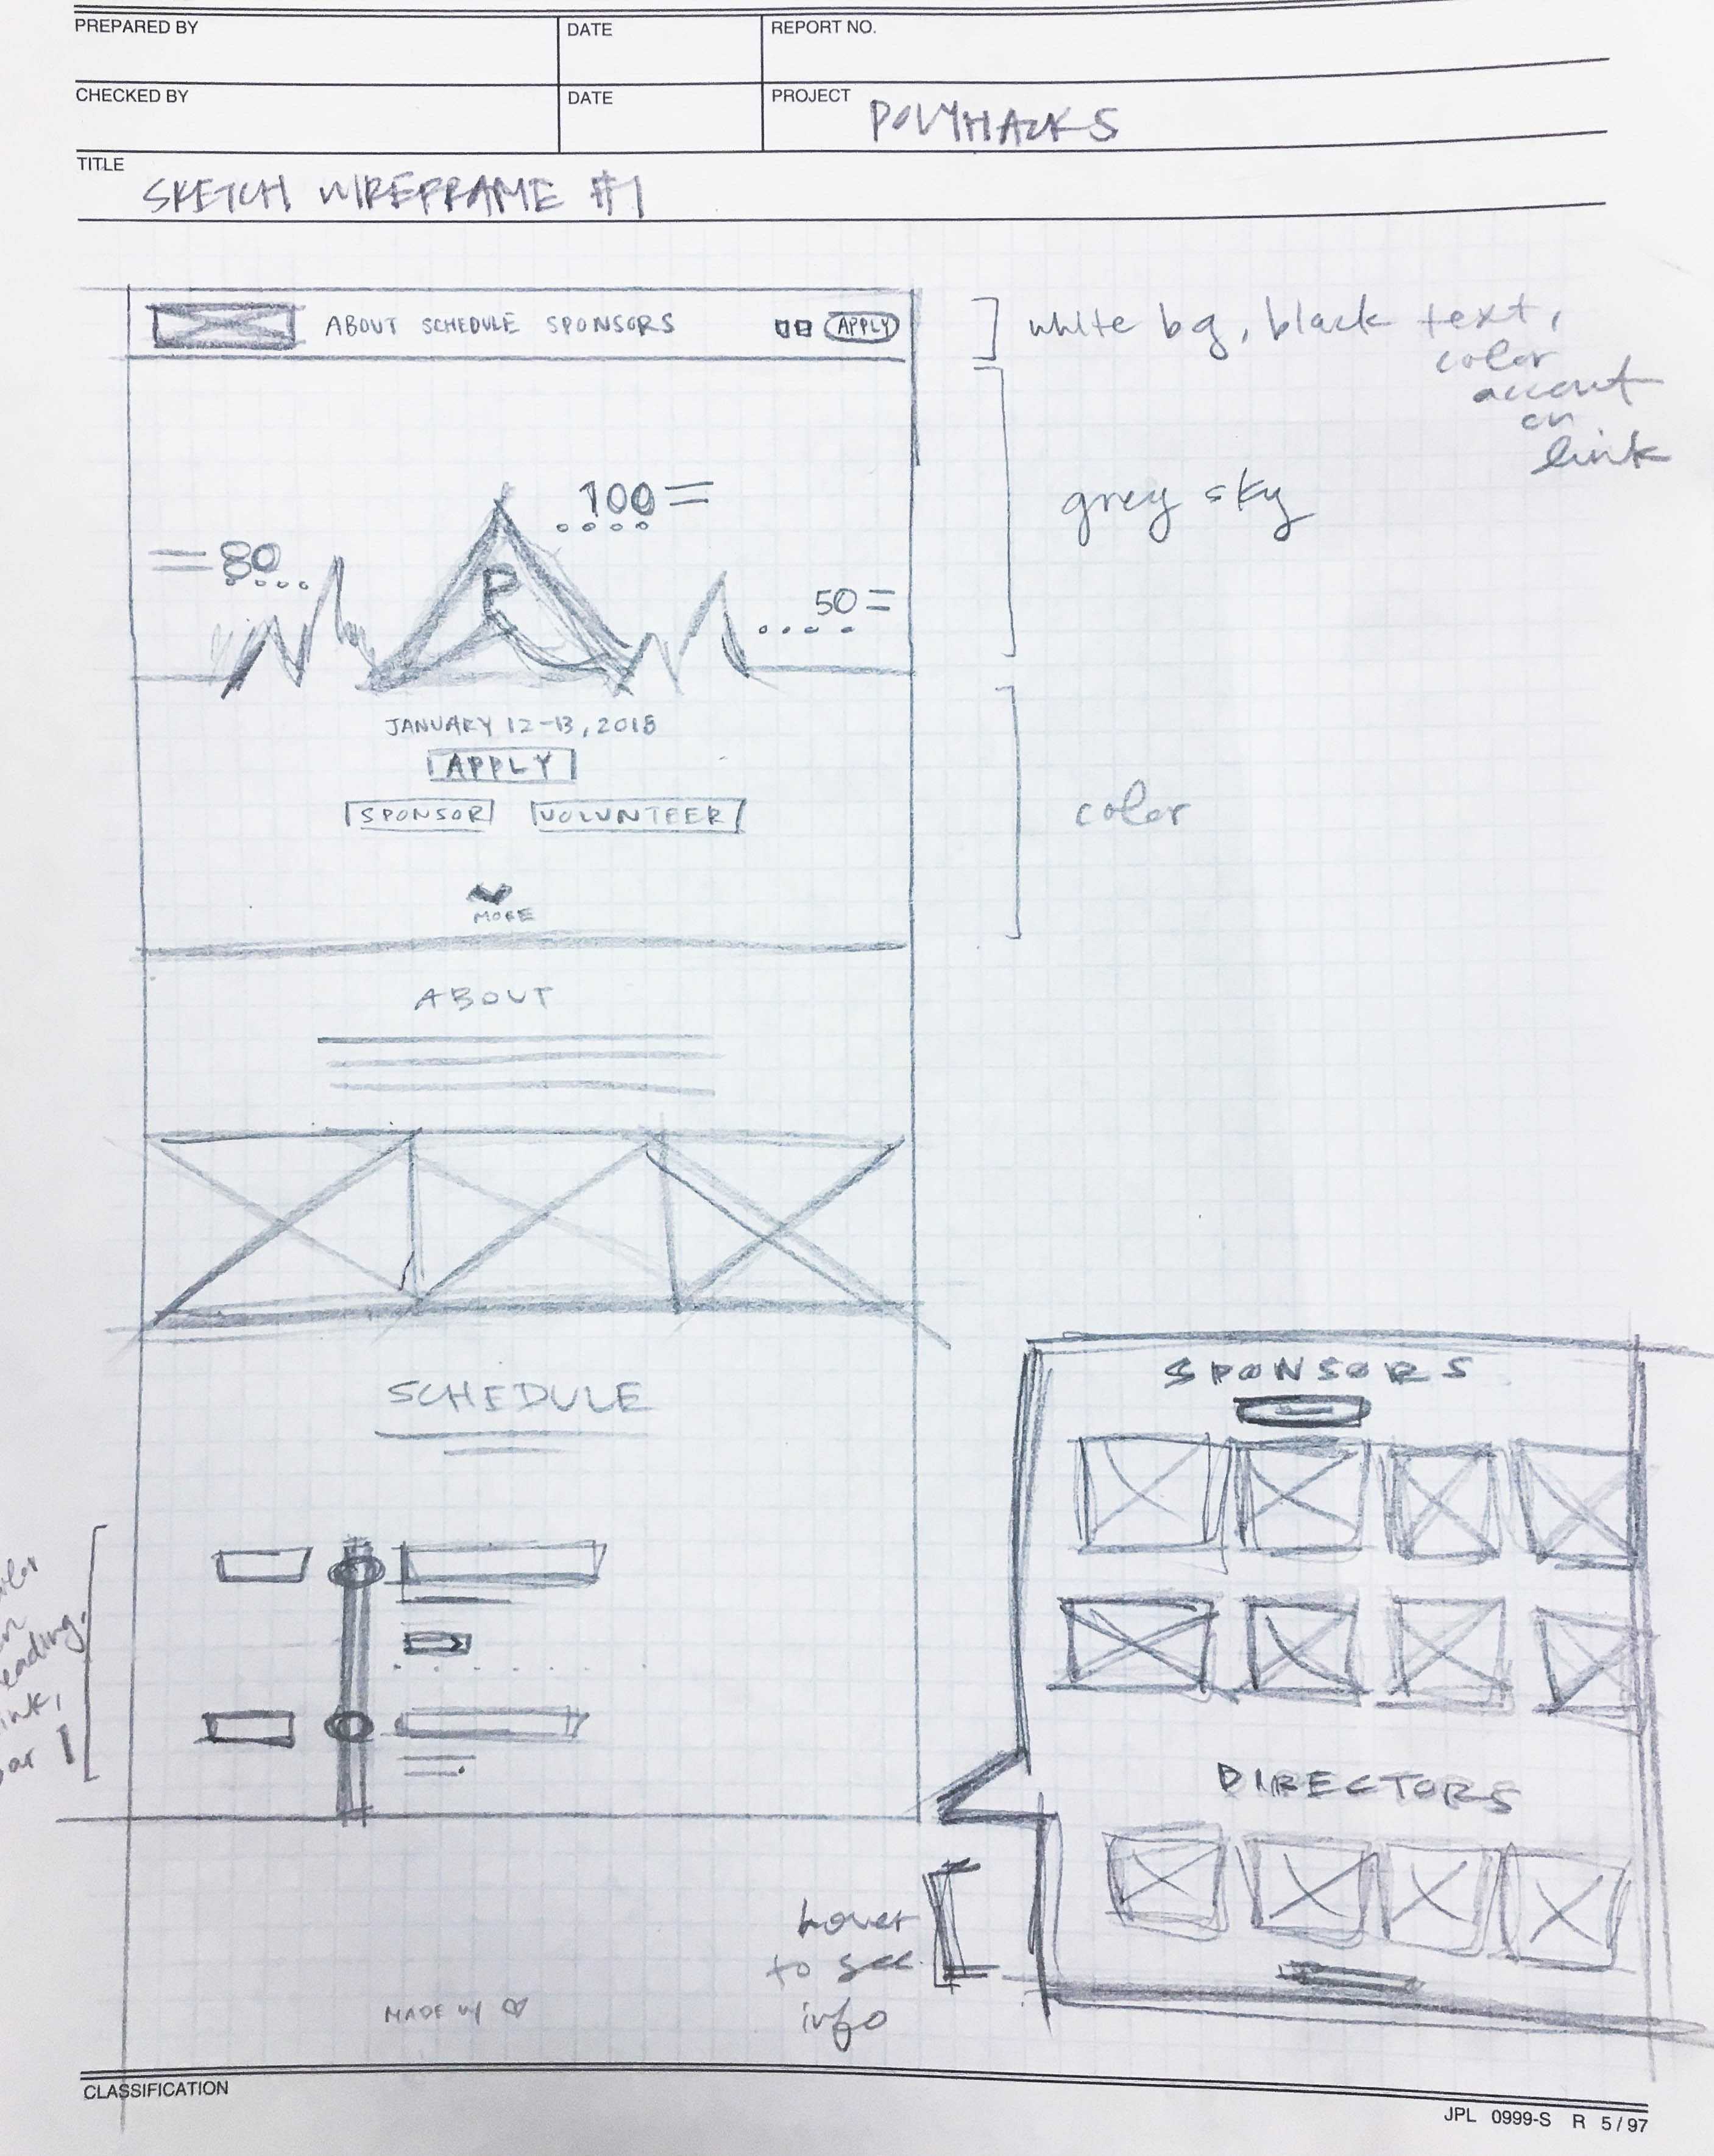 PREPARED BY
DATE
REPORT NO.
CHECKED BY
DATE
PROJECT
POLYHACKS
TITLE
SKETCH WIREFRAME #1
ABOUT SCHEDULE SPONSORS
APPLY
white bg, black text,
color
accent
on
link
100
80
P
50
grey sky
JANUARY 12-13, 2018
APPLY
SPONSOR VOLUNTEER
color
MORE
ABOUT
SCHEDULE
SPONSORS
DIRECTORS
hover
to see
info
MADE w/ ♡
CLASSIFICATION
JPL 0999-S R 5/97